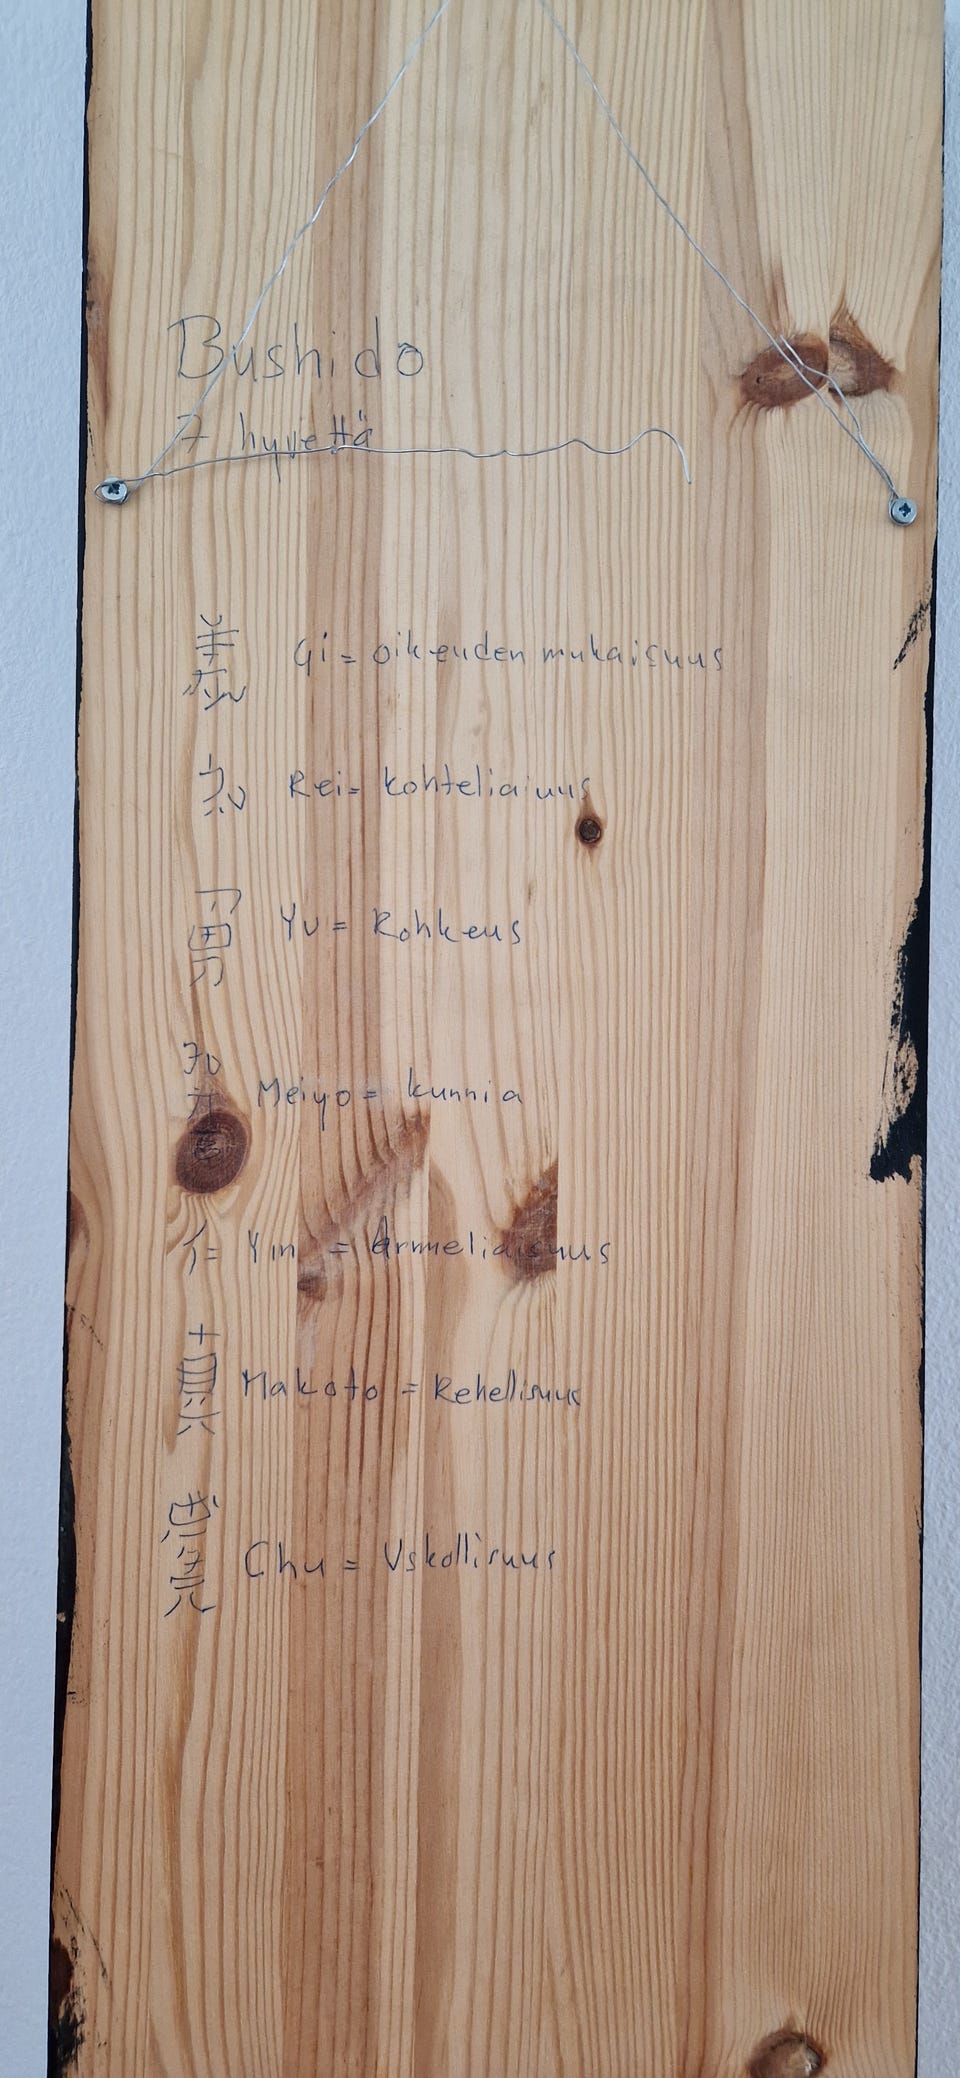 Bushido
7 hyvettä
義 Gi = oikeudenmukaisuus
礼 Rei = kohteliaiuus
勇 Yu = Rohkeus
Meiyo = kunnia
仁 Yin = Armeliaisuus
真 Makoto = Rehellisuus
Chu = Uskollisuus